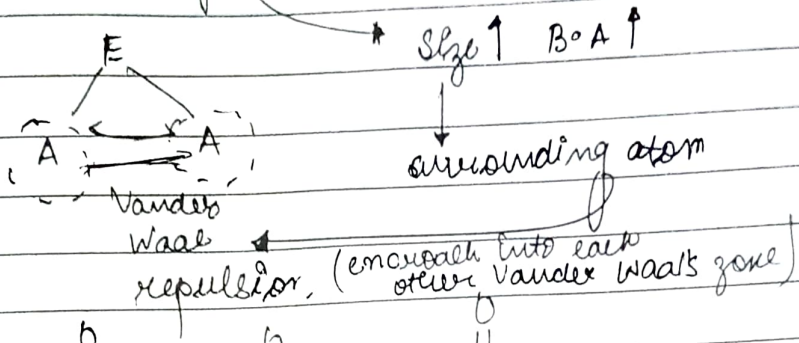 Size ↑ B.A ↑
E
A A
surrounding atom
Vander
Waal
repulsion, (encroach into each
other Vander Waals zone)